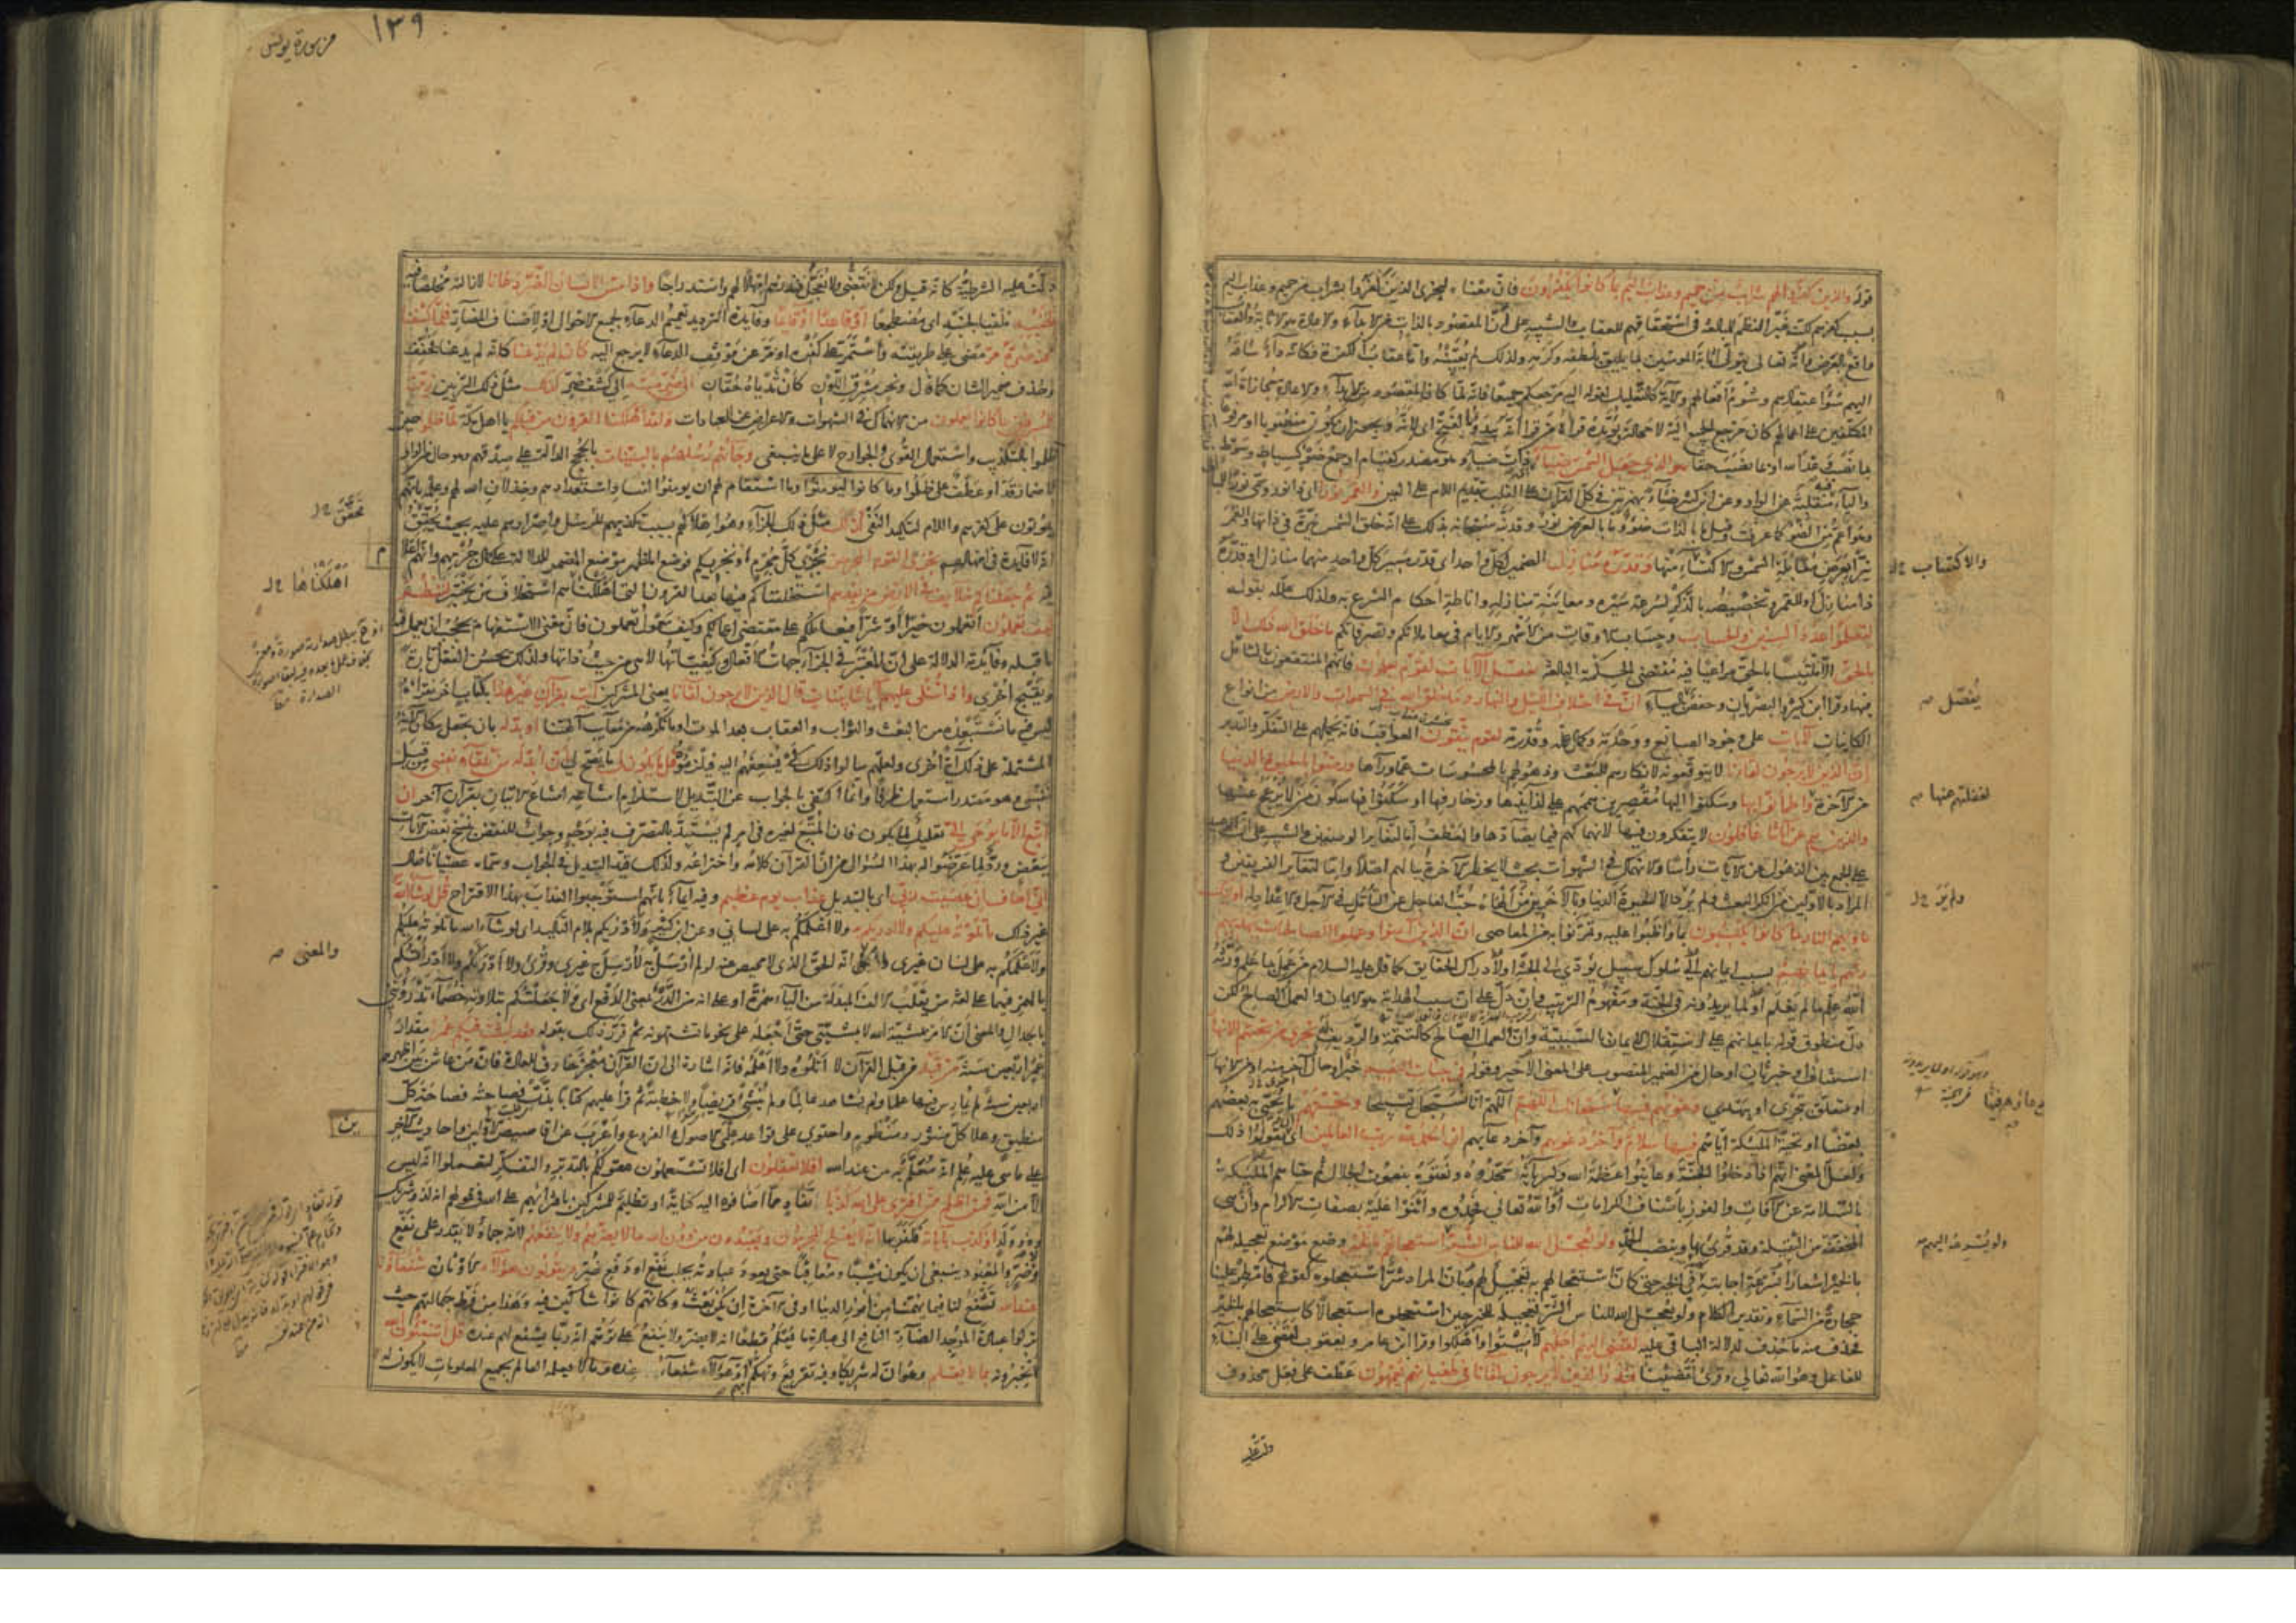 قوله والذين كفروا لهم شراب من حميم وعذاب اليم بما كانوا يكفرون فان معناه ليجزى الذين كفروا بشراب من حميم وعذاب اليم
بسبب كفرهم لكنه غير النظم للمبالغة فى استحقاقهم للعقاب والتنبيه على ان المقصود بالذات من الابداء والاعادة هو الاثابة والعقاب
واقع بالعرض وانه تعالى يتولى اثابة المؤمنين بما يليق بلطفه وكرمه ولذلك لم يعينه واما عقاب الكفرة فكانه داء ساقه
اليهم سوء اعتقادهم وشوم افعالهم والاية كالتعليل لقوله اليه مرجعكم جميعا فانه لما كان المقصود من الابداء والاعادة مجازاة الله
المكلفين على اعمالهم كان مرجع الجميع اليه لا محالة ويؤيده قراءة من قرا انه يبدؤ بالفتح اى لانه ويجوز ان يكون منصوبا او مرفوعا
بما نصب وعد الله او بما نصب حقا هو الذى جعل الشمس ضياء ذات ضياء وهو مصدر كقيام او جمع ضوء كسياط وسوط
والياء فيه منقلبة عن الواو وعن ابن كثير ضئاء بهمزتين فى كل القران على القلب بتقديم اللام على العين والقمر نورا اى ذا نور وسمى نورا للمبالغة
وهو اعم من الضوء كما عرفت وقيل ما بالذات ضوء وما بالعرض نور وقد نبه سبحانه بذلك على انه خلق الشمس نيرة فى ذاتها والقمر
نيرا بعرض مقابلة الشمس والاكتساب منها وقدره منازل الضمير لكل واحد اى قدر مسير كل واحد منهما منازل او قدره
ذا منازل او للقمر وتخصيصه بالذكر لسرعة سيره ومعاينة منازله واناطة احكام الشرع به ولذلك علله بقوله
لتعلموا عدد السنين والحساب وحساب الاوقات من الاشهر والايام فى معاملاتكم وتصرفاتكم ما خلق الله ذلك الا
بالحق الا متلبسا بالحق مراعيا فيه مقتضى الحكمة البالغة نفصل الايات لقوم يعلمون فانهم المنتفعون بالتامل
فيها وقرا ابن كثير والبصريان وحفص بالياء ان فى اختلاف الليل والنهار وما خلق الله فى السموات والارض من انواع
الكاينات لايات على وجود الصانع ووحدته وكمال علمه وقدرته لقوم يتقون العواقب فانه يحملهم على التفكر والتدبر
ان الذين لا يرجون لقاءنا لا يتوقعونه لانكارهم للبعث وذهولهم بالمحسوسات عما وراءها ورضوا بالحيوة الدنيا
من الاخرة واطمانوا بها وسكنوا اليها مقصرين هممهم على لذايذها وزخارفها او سكنوا فيها سكون من لا يزعج عنها
والذين هم عن اياتنا غافلون لا يتفكرون فيها لانهماكهم فيما يضادها والعطف اما لتغاير الوصفين والتنبيه على ان الوعيد
على الجمع بين الذهول عن الايات راسا والانهماك فى الشهوات بحيث لا يخطر الاخرة ببالهم اصلا واما لتغاير الفريقين و
المراد بالاولين من انكر البعث ولم ير الا الحيوة الدنيا وبالاخرين من الهاه حب العاجل عن التامل فى الاجل والاعداد له اولئك
ماويهم النار بما كانوا يكسبون بما واظبوا عليه وتمرنوا به من المعاصى ان الذين آمنوا وعملوا الصالحات يهديهم
ربهم بايمانهم بسبب ايمانهم الى سلوك سبيل يؤدى الى الجنة او لادراك الحقايق كما قال عليه السلام من عمل بما علم ورثه
الله علم ما لم يعلم او لما يريدونه فى الجنة ومفهوم الترتيب وان دل على ان سبب الهداية هو الايمان والعمل الصالح لكن
دل منطوق قوله بايمانهم على استقلال الايمان بالسببية وان العمل الصالح كالتتمة والرديف له تجرى من تحتهم الانهار
استيناف او خبر ثان او حال من الضمير المنصوب على المعنى الاخير وقوله فى جنات النعيم خبر او حال اخرى منه او من الانهار
او متعلق بتجرى او بيهدى دعويهم فيها سبحانك اللهم اللهم انا نسبحك تسبيحا وتحيتهم ما يحيى به بعضهم
بعضا او تحية الملئكة اياهم فيها سلام وآخر دعويهم وآخر دعايهم ان الحمد لله رب العالمين اى ان يقولوا ذلك
ولعل المعنى انهم اذا دخلوا الجنة وعاينوا عظمة الله وكبرياءه مجدوه ونعتوه بنعوت الجلال ثم حياهم الملئكة
بالسلامة عن الافات والفوز باصناف الكرامات او الله تعالى فحمدوه واثنوا عليه بصفات الاكرام وان هى
المخففة من الثقيلة وقد قرى بها وبنصب الحمد ولو يعجل الله للناس الشر استعجالهم بالخير وضع موضع تعجيله لهم
بالخير اشعارا بسرعة اجابته فى الخير حتى كان استعجالهم به تعجيل لهم وبان المراد شر استعجلوه كقولهم فامطر علينا
حجارة من السماء وتقدير الكلام ولو يعجل الله للناس الشر تعجيله للخير حين استعجلوه استعجالا كاستعجالهم بالخير
فحذف منه ما حذف لدلالة الباقى عليه لقضى اليهم اجلهم لاميتوا واهلكوا وقرا ابن عامر ويعقوب لقضى على البناء
للفاعل وهو الله تعالى وقرى لقضينا فنذر الذين لا يرجون لقاءنا فى طغيانهم يعمهون عطف على فعل محذوف
والاكتساب
يفصل
لغفلتهم عنها
ولم ير
من سورة يونس
١٣٩
دلت عليه الشرطية كانه قيل ولكن لا نعجل ولا نقضى فنذرهم امهالا لهم واستدراجا واذا مس الانسان الضر دعانا لازالته مخلصا فيه
لجنبه ملقيا لجنبه اى مضطجعا او قاعدا او قائما وفايدة الترديد تعميم الدعاء لجميع الاحوال او لاصناف المضار فلما كشفنا
عنه ضره مر مضى على طريقته واستمر على كفره او مر عن موقف الدعاء لا يرجع اليه كان لم يدعنا كانه لم يدعنا فخفف
وحذف ضمير الشان كما قال ونحر مشرق اللون كان ثدياه حقان الى ضر مسه الى كشف ضر كذلك مثل ذلك التزيين زين
للمسرفين ما كانوا يعملون من الانهماك فى الشهوات والاعراض عن العبادات ولقد اهلكنا القرون من قبلكم يا اهل مكة لما ظلموا حين
ظلموا بالتكذيب واستعمال القوى والجوارح لا على ما ينبغى وجاءتهم رسلهم بالبينات بالحجج الدالة على صدقهم وهو حال من الواو
باضمار قد او عطف على ظلموا وما كانوا ليؤمنوا وما استقام لهم ان يومنوا لفساد استعدادهم وخذلان الله لهم وعلمه بانهم
يموتون على كفرهم واللام لتاكيد النفى كذلك مثل ذلك الجزاء وهو اهلاكهم بسبب تكذيبهم للرسل واصرارهم عليه بحيث تحقق
انه لا فايدة فى امهالهم نجزى القوم المجرمين نجزى كل مجرم او نجزيكم فوضع المظهر موضع المضمر للدلالة على كمال جرمهم وانهم اعلام
فيه ثم جعلناكم خلائف فى الارض من بعدهم استخلفناكم فيها بعد القرون التى اهلكناهم استخلاف من يختبر لننظر
كيف تعملون اتعملون خيرا او شرا فنعاملكم على مقتضى اعمالكم وكيف معمول تعملون فان معنى الاستفهام يحجب ان يعمل فيه
ما قبله وفايدته الدلالة على ان المعتبر فى الجزاء جهات الافعال وكيفياتها لا هى من حيث ذاتها ولذلك يحسن الفعل تارة
ويقبح اخرى واذا تتلى عليهم آياتنا بينات قال الذين لا يرجون لقاءنا يعنى المشركين ائت بقرآن غير هذا بكتاب اخر نقراه
ليس فيه ما نستبعده من البعث والثواب والعقاب بعد الموت او ما نكرهه من معايب الهتنا او بدله بان يجعل مكان الاية
المشتملة على ذلك آية اخرى ولعلهم سالوا ذلك كى يسعفهم اليه فيلزموه قل ما يكون لى ما يصح لى ان ابدله من تلقاء نفسى من قبل
نفسى وهو مصدر استعمل ظرفا وانما اكتفى بالجواب عن التبديل لاستلزام امتناعه امتناع الاتيان بقرآن آخر ان
اتبع الا ما يوحى الى تعليل لما يكون فان المتبع لغيره فى امر لم يستبد بالتصرف فيه بوجه وجواب للنقض بنسخ بعض الايات
ببعض ورد لما عرضوا له بهذا السؤال من ان القرآن كلامه واختراعه ولذلك قيد التبديل فى الجواب وسماه عصيانا فقال
انى اخاف ان عصيت ربى اى بالتبديل عذاب يوم عظيم وفيه ايماء بانهم استوجبوا العذاب بهذا الاقتراح قل لو شاء الله
غير ذلك ما تلوته عليكم ولا ادريكم به ولا اعلمكم به على لسانى وعن ابن كثير ولادريكم بلام التاكيد اى لو شاء الله ما تلوته عليكم
ولاعلمكم به على لسان غيرى والمعنى انه الحق الذى لا محيص عنه لو لم ارسل به لارسل به غيرى وقرى ولا ادراكم ولا ادراتكم
بالهمز فيهما على لغة من يقلب الالف المبدلة من الياء همزة او على انه من الدرء بمعنى الدفع اى ولا جعلتكم بتلاوته خصماء تدرؤننى
بالجدال والمعنى ان الامر بمشية الله لا بمشيتى حتى اجعله على نحو ما تشتهونه ثم قرر ذلك بقوله فقد لبثت فيكم عمرا مقدار
عمر اربعين سنة من قبله من قبل القرآن لا اتلوه ولا اعلمه فانه اشارة الى ان القرآن معجز خارق للعادة فان من عاش بين اظهرهم
اربعين سنة لم يمارس فيها علما ولم يشاهد عالما ولم ينشئ قريضا ولا خطبة ثم قرا عليهم كتابا بذت فصاحته فصاحة كل
منطيق وعلا كل منثور ومنظوم واحتوى على قواعد علمى الاصول والفروع واعرب عن اقاصيص الاولين واحاديث الاخرين
على ما هى عليه علم انه معلم به من عند الله افلا تعقلون اى افلا تستعملون عقولكم بالتدبر والتفكر لتعلموا انه ليس
الا من الله فمن اظلم ممن افترى على الله كذبا تفاد مما اضافوه اليه كناية او تظليم للمشركين بافترائهم على الله فى قولهم انه لذو شريك
وذو ولد او كذب بآياته فكفر بها انه لا يفلح المجرمون ويعبدون من دون الله ما لا يضرهم ولا ينفعهم لانه جماد لا يقدر على نفع
وضر والمعبود ينبغى ان يكون مثيبا ومعاقبا حتى يعود عبادته بجلب نفع او دفع ضر ويقولون هؤلاء الاوثان شفعاؤنا
عند الله تشفع لنا فيما يهمنا من امور الدنيا او فى الاخرة ان يكن بعث وكانهم كانوا شاكين فيه وهذا من فرط جهالتهم حيث
تركوا عبادة الموجد الضار النافع الى عبادة ما يعلم قطعا انه لا يضر ولا ينفع على توهم انه ربما يشفع لهم عنده قل اتنبئون الله
اتخبرونه بما لا يعلم وهو ان له شريكا وفيه تقريع وتهكم بهم او هؤلاء شفعاؤنا عنده وما لا يعلمه العالم بجميع المعلومات لا يكون له
تحقق
اهلكناها
والمعنى